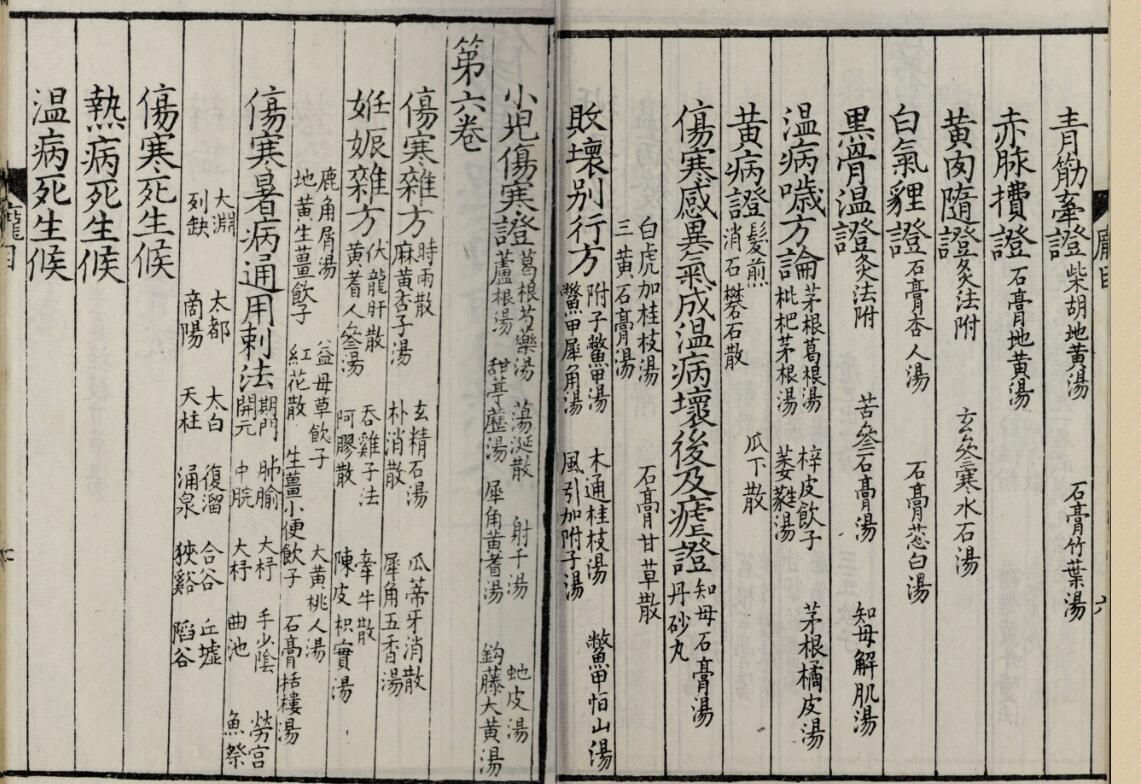 青筋牽證 柴胡地黃湯 石膏竹葉湯
赤脉攢證 石膏地黃湯
黃肉隨證灸法附 玄參寒水石湯
白氣貍證 石膏杏人湯 石膏葱白湯
黑骨温證灸法附 苦參石膏湯 知母解肌湯
温病噦方論 茅根葛根湯 梓皮飲子 茅根橘皮湯
枇杷茅根湯 萎蕤湯
黃病證 髮煎 瓜下散
消石礬石散
傷寒感異氣成温病壞後及瘧證 知母石膏湯
丹砂丸
白虎加桂枝湯 石膏甘草散
三黃石膏湯
敗壞别行方 附子鱉甲湯 木通桂枝湯 鱉甲怕山湯
鱉甲犀角湯 風引加附子湯
小児傷寒證 葛根芍藥湯 蕩涎散 射干湯 虵皮湯
蘆根湯 甜葶藶湯 犀角黃耆湯 鈎藤大黃湯
第六卷
傷寒雜方 時雨散 玄精石湯 瓜蒂牙消散
麻黃杏子湯 朴消散 犀角五香湯
妊娠雜方 伏龍肝散 吞雞子法 牽牛散
黃耆人參湯 阿膠散 陳皮枳實湯
鹿角屑湯 益母草飲子 大黃桃人湯
地黃生薑飲子 紅花散 生薑小便飲子 石膏栝樓湯
傷寒暑病通用刺法 期門 肺腧 大杼 手少陰 勞宫
開元 中脘 大杼 曲池 魚祭
大淵 太都 太白 復溜 合谷 丘墟
列缺 啇陽 天柱 涌泉 狹谿 䧟谷
傷寒死生候
熱病死生候
温病死生候